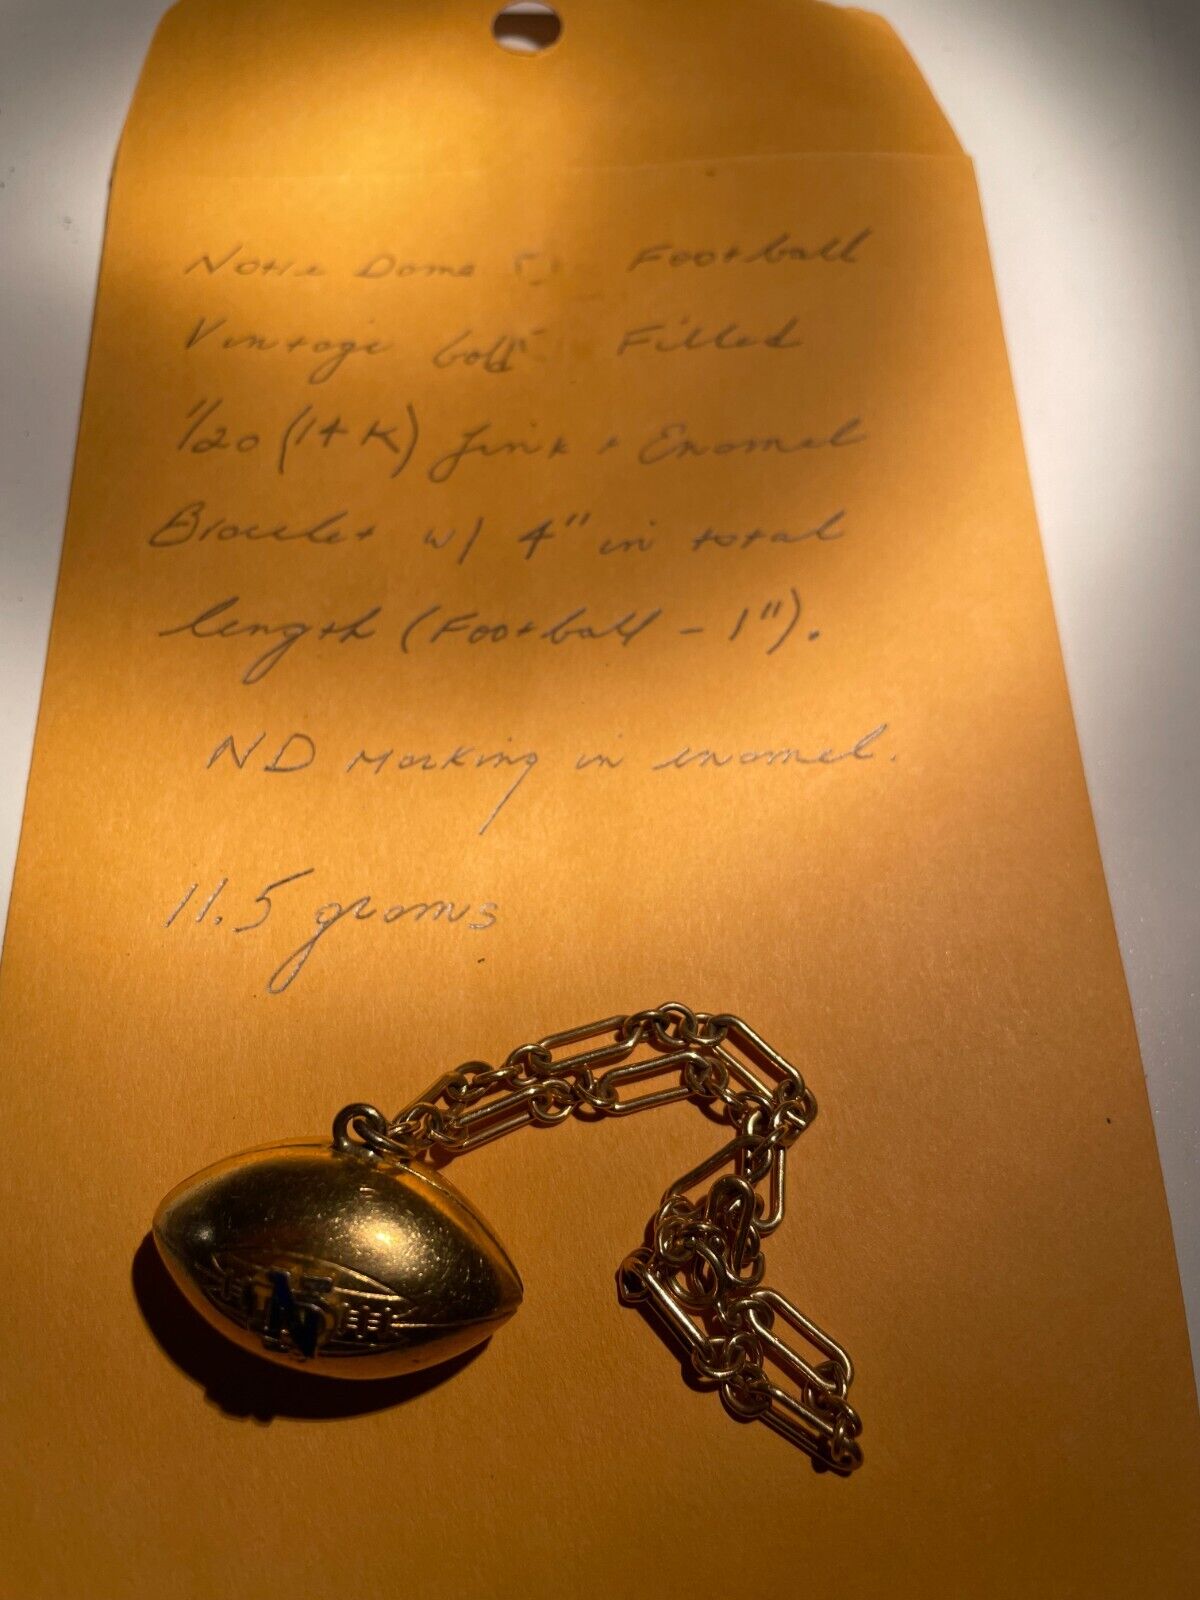 Notre Dame Football
Vintage Gold Filled
1/20 (14K) Link + Enamel
Bracelet w/ 4" in total
length (Football - 1").
ND Marking in enamel.
11.5 grams
ND